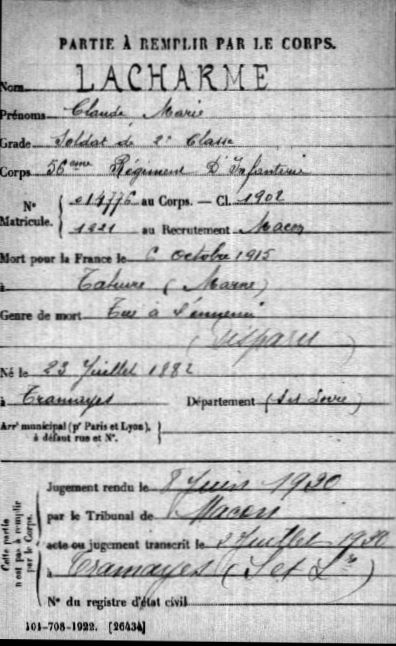 PARTIE À REMPLIR PAR LE CORPS.
Nom LACHARME
Prénoms Claude Marie
Grade Soldat de 2e Classe
Corps 56eme Régiment D'Infanterie
N° Matricule. { 014776 au Corps. — Cl. 1902
1221 au Recrutement Macon
Mort pour la France le 6 Octobre 1915
à Tahure (Marne)
Genre de mort Tué à l'ennemi
(Disparu)
Né le 23 Juillet 1882
à Tramayes Département (Set Loire)
Arrt municipal (pr Paris et Lyon), à défaut rue et N°.
Cette partie n'est pas à remplir par le Corps.
Jugement rendu le 8 Juin 1920
par le Tribunal de Macon
acte ou jugement transcrit le 2 Juillet 1920
à Tramayes (S et Lre)
N° du registre d'état civil
101-708-1922. [26434]